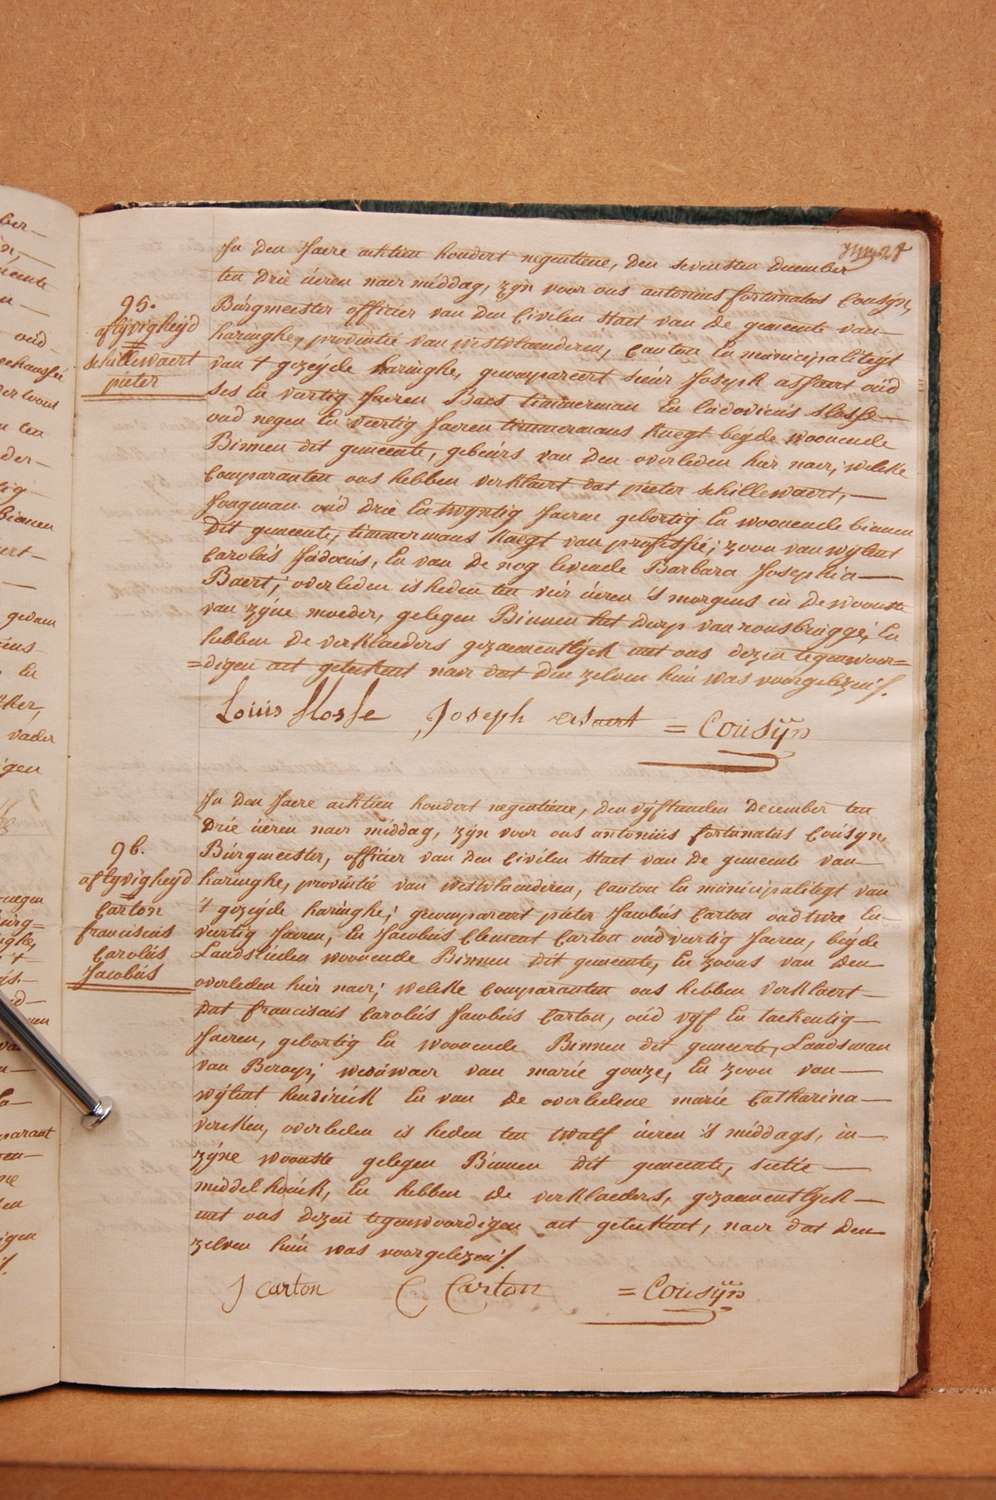 In den Jaere achtien hondert negentiene, den sevensten december
ten drie ueren naer middag, zyn voor ons antonius fortunatus Cousyn,
95.
Burgmeester officier van den Civilen Staet van de gemeente van
aflyvigheyd
haringhe, provintie van westvlaenderen, canton en municipaliteyt
schillewaert
van 't gezeyde haringhe, gecompareert sieur Joseph assaert oud
pieter
ses en veertig Jaeren Baes timmerman en ludovicus Slosse
oud negen en veertig Jaeren timmermans knegt beyde woonende
Binnen dit gemeente, gebeurs van den overleden hier naer, welcke
Comparanten ons hebben verklaert dat pieter schillewaert,
Jongman oud drie en twyntig Jaeren gebortig en woonende binnen
dit gemeente, timmermans knegt van professie; zoon van wylent
Carolus Judocus, en van de nog levende Barbara Josephia
Baert; overleden is heden ten vier ueren 's morgens in de wooninge
van zyne moeder, gelegen Binnen het dorp van rousbrugge; en
hebben de verklaeders gezaementlyck met ons dezen tegenwoor=
=digen act geteekent naer dat den zelven hun was voorgelezen ./.
Louis Slosse Joseph assaert = Cousyn
In den Jaere achtien hondert negentiene, den vyfthienden December ten
Drie ueren naer middag, zyn voor ons antonius fortunatus Cousyn,
96.
Burgmeester, officier van den Civilen Staet van de gemeente van
aflyvigheyd
haringhe, provintie van westvlaenderen, canton en municipaliteyt van
Carton
't gezeyde haringhe; gecompareert pieter Jacobus Carton oud twee en
franciscus
veertig Jaeren, en Jacobus Clement Carton oud veertig Jaeren, beyde
Carolus
Landslieden woonende Binnen dit gemeente, en zoons van den
Jacobus
overleden hier naer; welcke comparanten ons hebben verklaert
dat franciscus Carolus Jacobus Carton, oud vyf en tachentig
Jaeren, gebortig en woonende Binnen dit gemeente, Landsman
van Beroep; weduwaer van marie gouze, en zoon van
wylent hendrick en van de overledene marie Catharina
vereken, overleden is heden ten twalf ueren 's middags, in
zyne woonste gelegen Binnen dit gemeente, sectie
middelhouck, en hebben de verklaeders, gezaementlyck
met ons dezen tegenwoordigen act geteekent, naer dat den
zelven hun was voorgelezen ./.
J carton C Carton = Cousyn